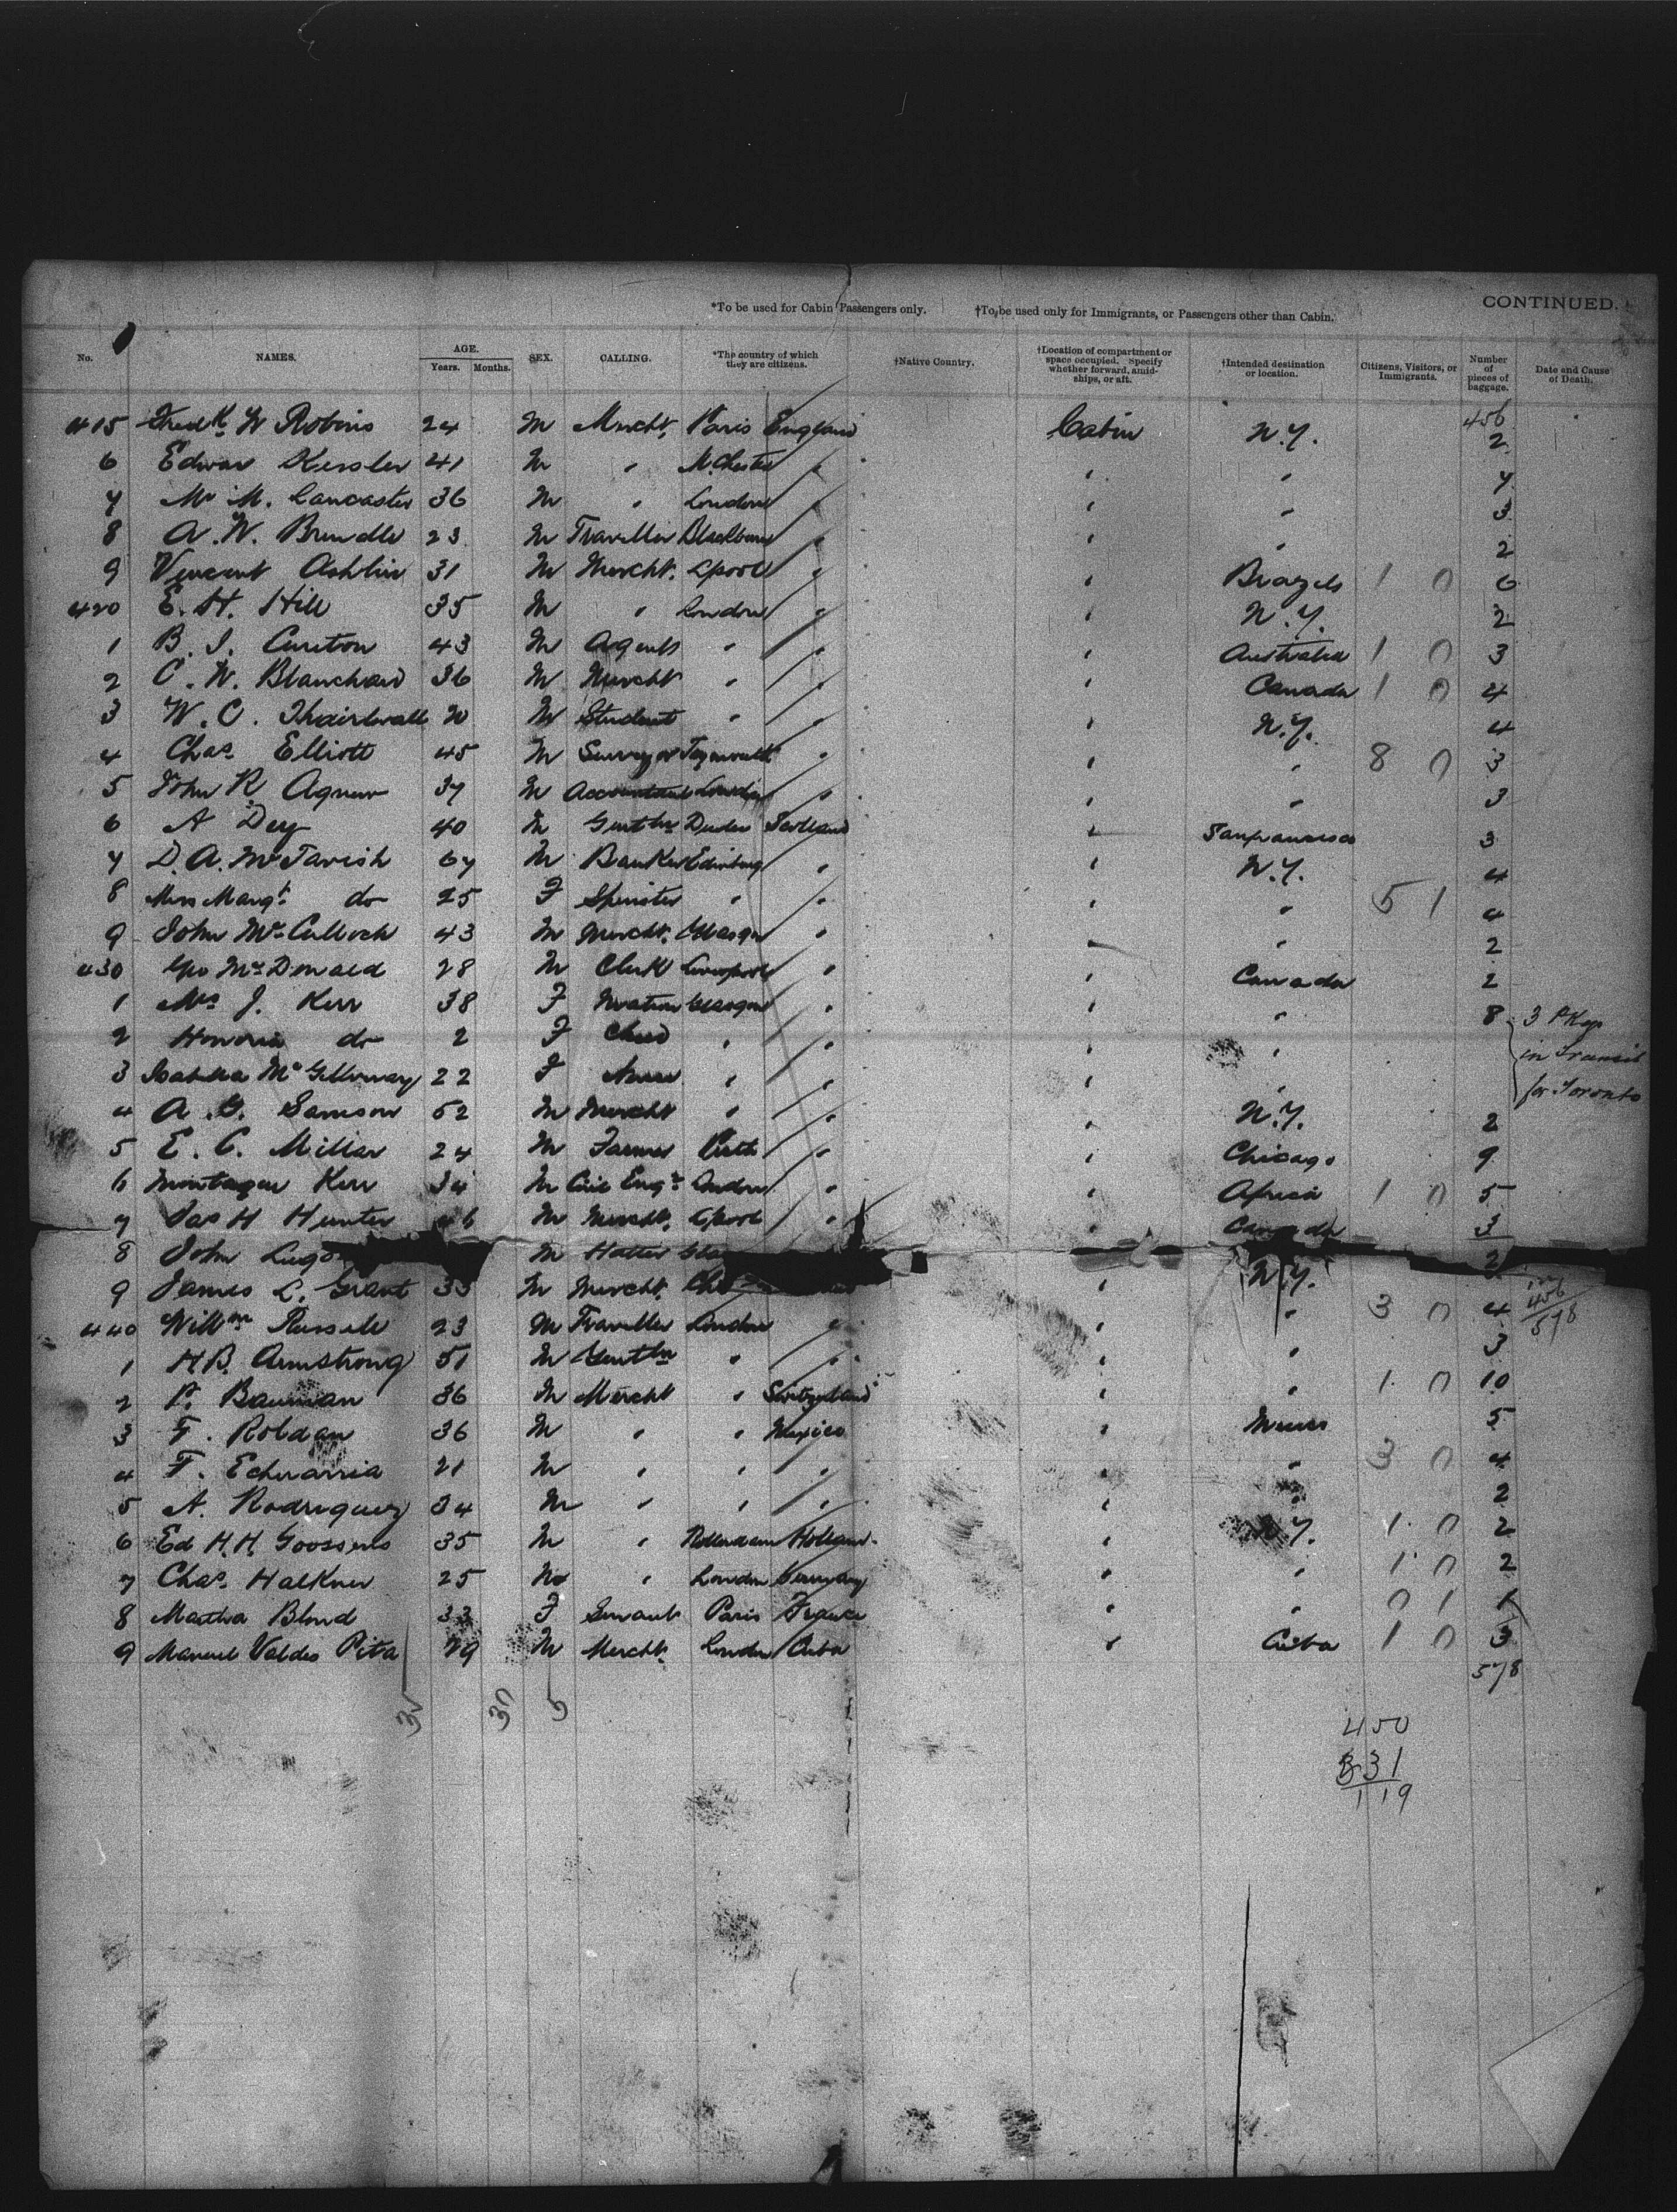 CONTINUED.
*To be used for Cabin Passengers only. †To be used only for Immigrants, or Passengers other than Cabin.
No. NAMES. AGE. Years. Months. SEX. CALLING. *The country of which they are citizens. †Native Country. †Location of compartment or space occupied. Specify whether forward, amidships, or aft. †Intended destination or location. Citizens, Visitors, or Immigrants. Number of pieces of baggage. Date and Cause of Death.
456
415 Fredk W Robins 24 M Mercht. Paris England Cabin N.Y. 2
6 Edwar Kessler 41 M " M.Chester " " " 4
7 Mr M. Lancaster 36 M " London " " " 3
8 A. W. Brindle 23 M Traveller Blackburn " " " 2
9 Vincent Ashlin 31 M Mercht. Lpool " " Brazils 1 0 6
420 E. H. Hill 35 M " London " " N.Y. 2
1 B. J. Cureton 43 M Agents " " " Australia 1 0 3
2 C. W. Blanchard 36 M Mercht " " " Canada 1 0 4
3 W. C. Thairlwall 20 M Student " " " N.Y. 4
4 Chas. Elliott 45 M Surveyor " " " 8 0 3
5 John R Agnew 37 M Accountant London " " " 3
6 A Dey 40 M Gentln Dundee Scotland " Sanfrancisco 3
7 D. A. McTavish 67 M Banker Edinburg " " N.Y. 4
8 Miss Margt. do 25 F Spinster " " " " 5 1 4
9 John McCulloch 43 M Mercht. Glasgow " " " 2
430 Geo McDonald 28 M Clerk Liverpool " " Canada 2
1 Mrs J. Kerr 38 F Matron Glasgow " " " 8 3 Pkgs
2 Honoria do 2 F Child " " " " in Transit
3 Isabella McGilliway 22 F Nurse " " " " for Toronto
4 A. G. Samson 52 M Mercht " " " N.Y. 2
5 E. C. Millar 24 M Farmer Perth " " Chicago 9
6 Montague Kerr 34 M Civil Engr London " " Africa 1 0 5
7 Jas H Hunter M Mercht. Lpool " " Canada 3
8 John M Hatter N.Y. 2
9 James L. Grant 33 M Mercht. " " 3 0 4 456
578
440 Willm Russell 23 M Traveller London " " " 3
1 H B. Armstrong 51 M Gentln " " " " 1 0 10
2 P. Bauman 36 M Mercht " Switzerland " "
3 F. Roldan 36 M " " Mexico " 5
4 F. Echevarria 21 M " " " " " 3 0 4
5 A. Rodriguez 34 M " " " " " 2
6 Ed H. H. Goossens 35 M " Rotterdam Holland " N.Y. 1 0 2
7 Chas. Halkner 25 M " London Germany " " 1 0 2
8 Martha Blond 33 F Servant Paris France " " 0 1 1
9 Manuel Valdes Pita 29 M Mercht. London Cuba " Cuba 1 0 3
578
30 5
450
331
119